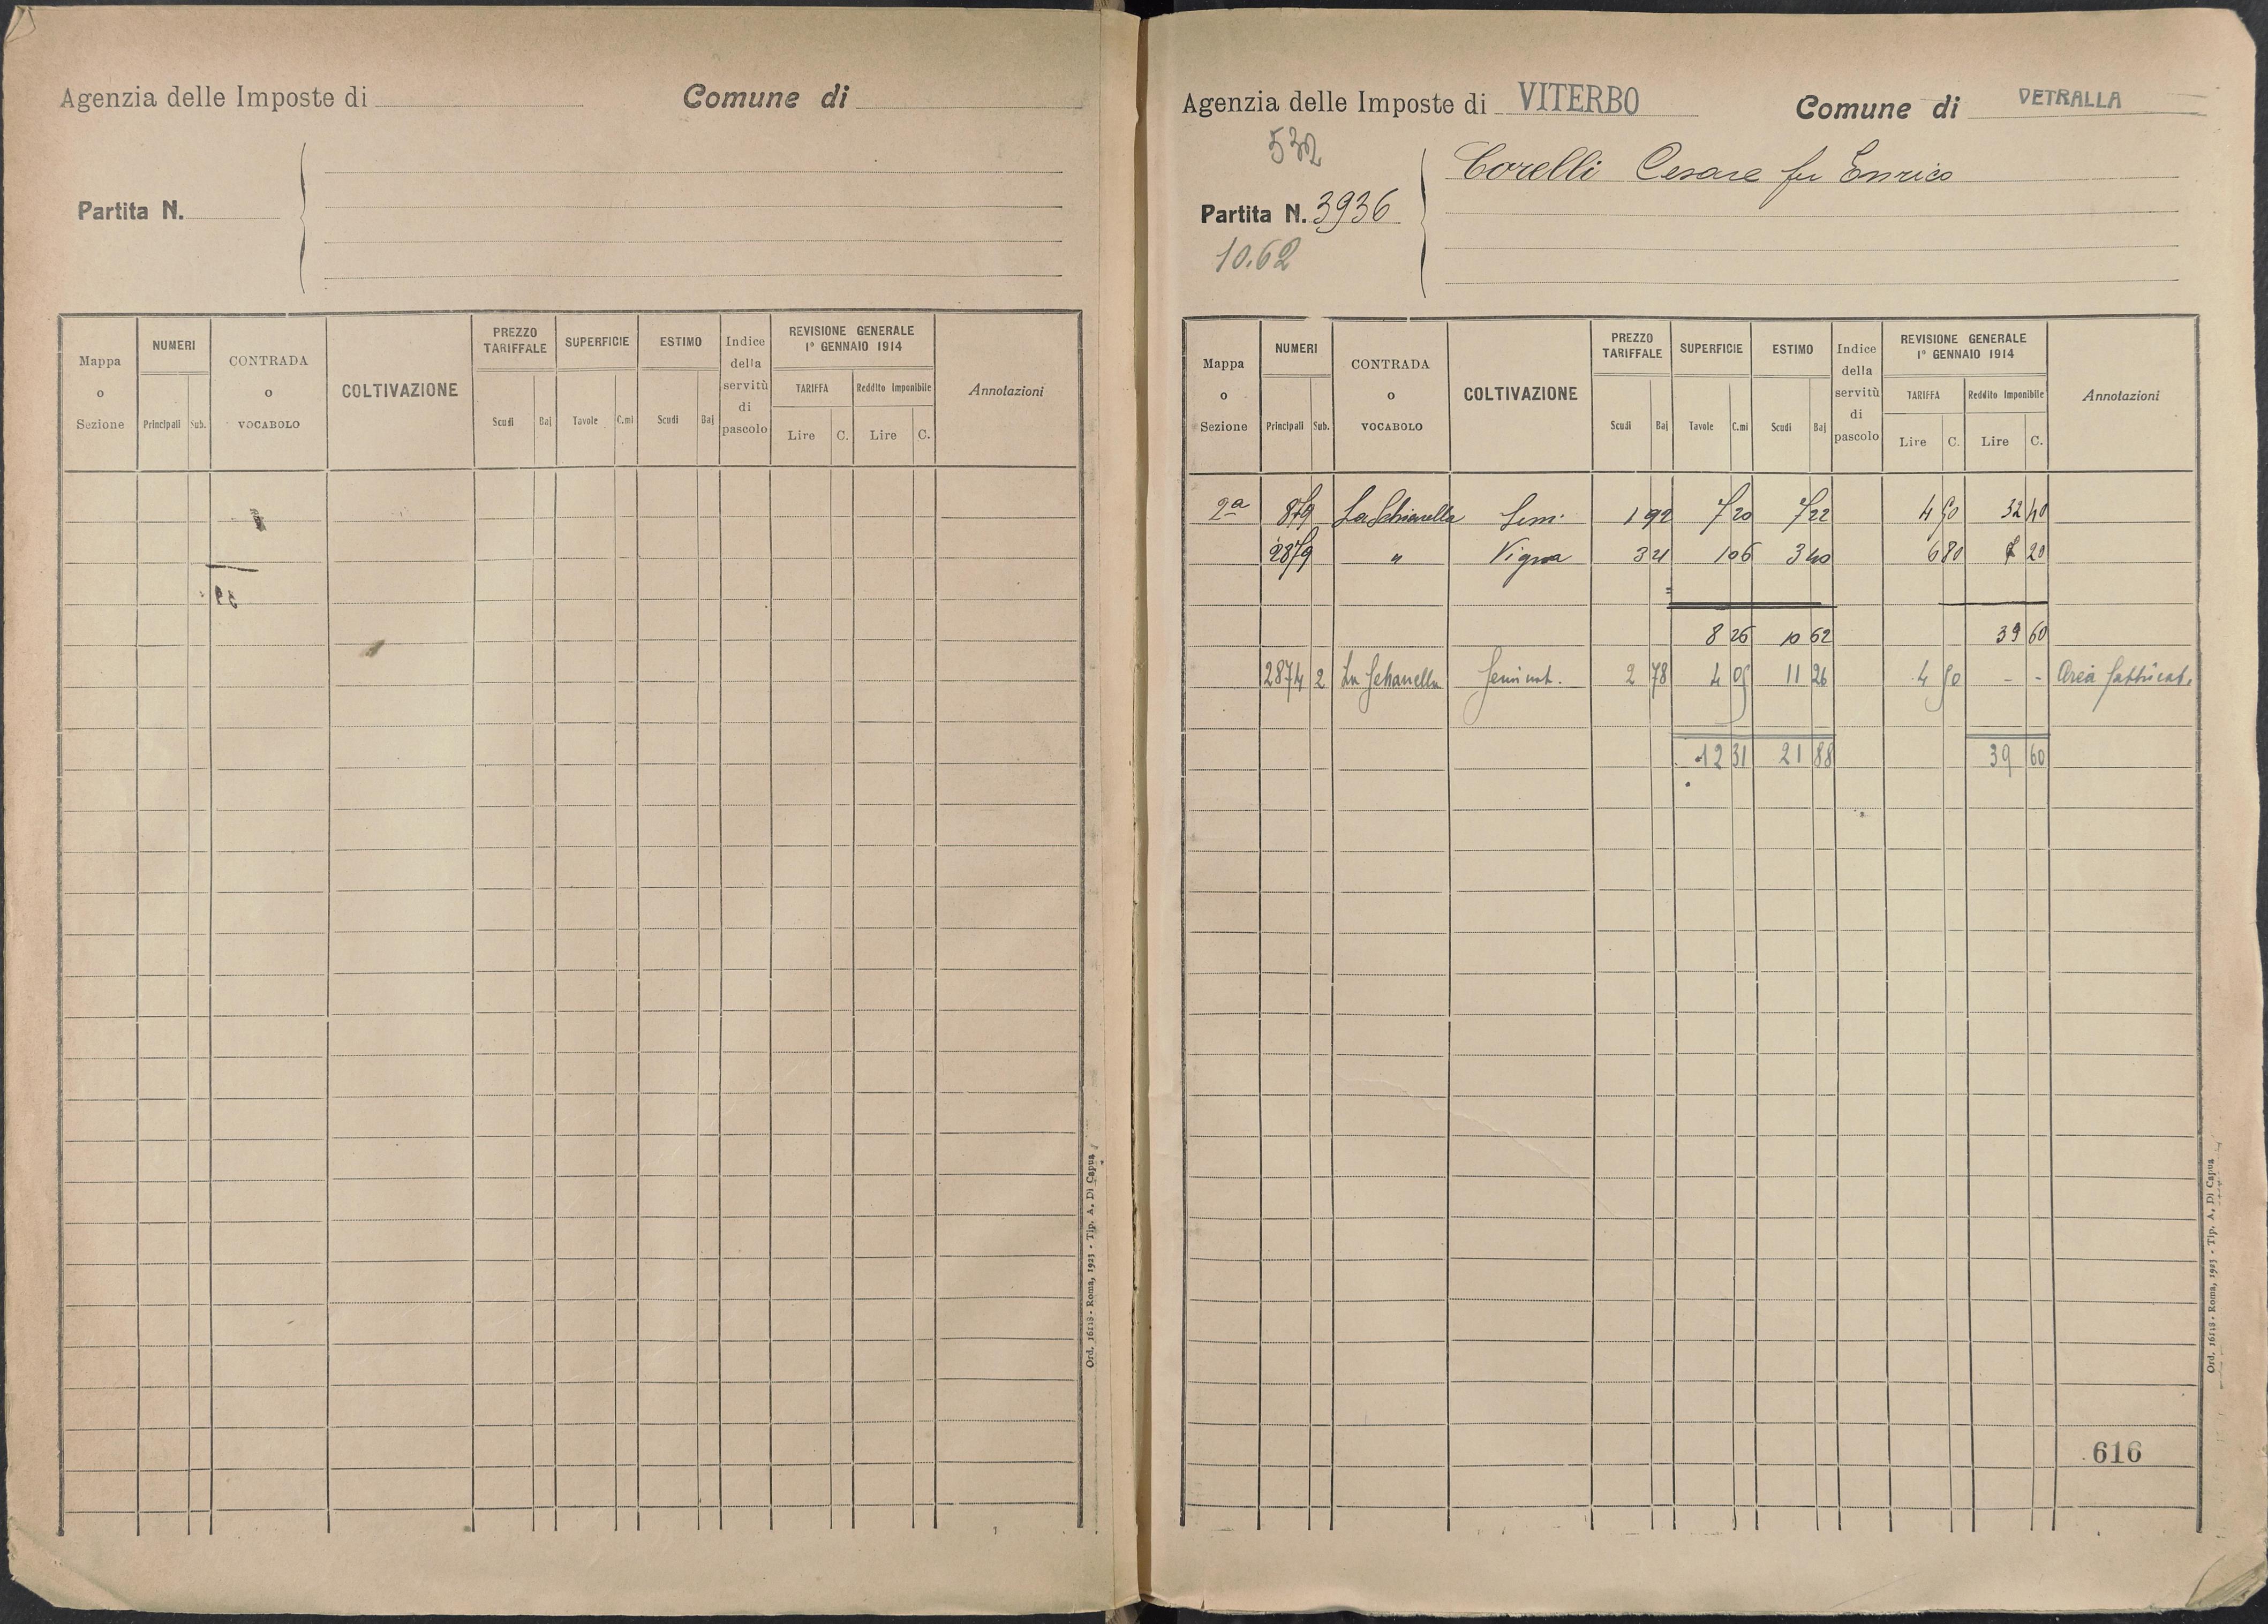 Agenzia delle Imposte di
Comune di
Partita N.
Mappa o Sezione
NUMERI
Principali Sub.
CONTRADA o VOCABOLO
COLTIVAZIONE
PREZZO TARIFFALE
Scudi Baj
SUPERFICIE
Tavole C.mi
ESTIMO
Scudi Baj
Indice della servitù di pascolo
REVISIONE GENERALE
1° GENNAIO 1914
TARIFFA
Lire C.
Reddito Imponibile
Lire C.
Annotazioni
Ord. 16118 - Roma, 1923 - Tip. A. Di Capua
Agenzia delle Imposte di VITERBO
Comune di VETRALLA
532
Corelli Cesare fu Enrico
Partita N. 3936
10.62
Mappa o Sezione
NUMERI
Principali Sub.
CONTRADA o VOCABOLO
COLTIVAZIONE
PREZZO TARIFFALE
Scudi Baj
SUPERFICIE
Tavole C.mi
ESTIMO
Scudi Baj
Indice della servitù di pascolo
REVISIONE GENERALE
1° GENNAIO 1914
TARIFFA
Lire C.
Reddito Imponibile
Lire C.
Annotazioni
2a 879 La Sem. 1 92 7 20 7 22 4 50 32 40
2879 " Vigna 3 21 1 06 3 40 6 80 7 20
8 26 10 62 39 60
2874 2 La Seminat. 2 78 4 05 11 26 4 50 - - Area fabbricat.
12 31 21 88 39 60
616
Ord. 16118 - Roma, 1923 - Tip. A. Di Capua